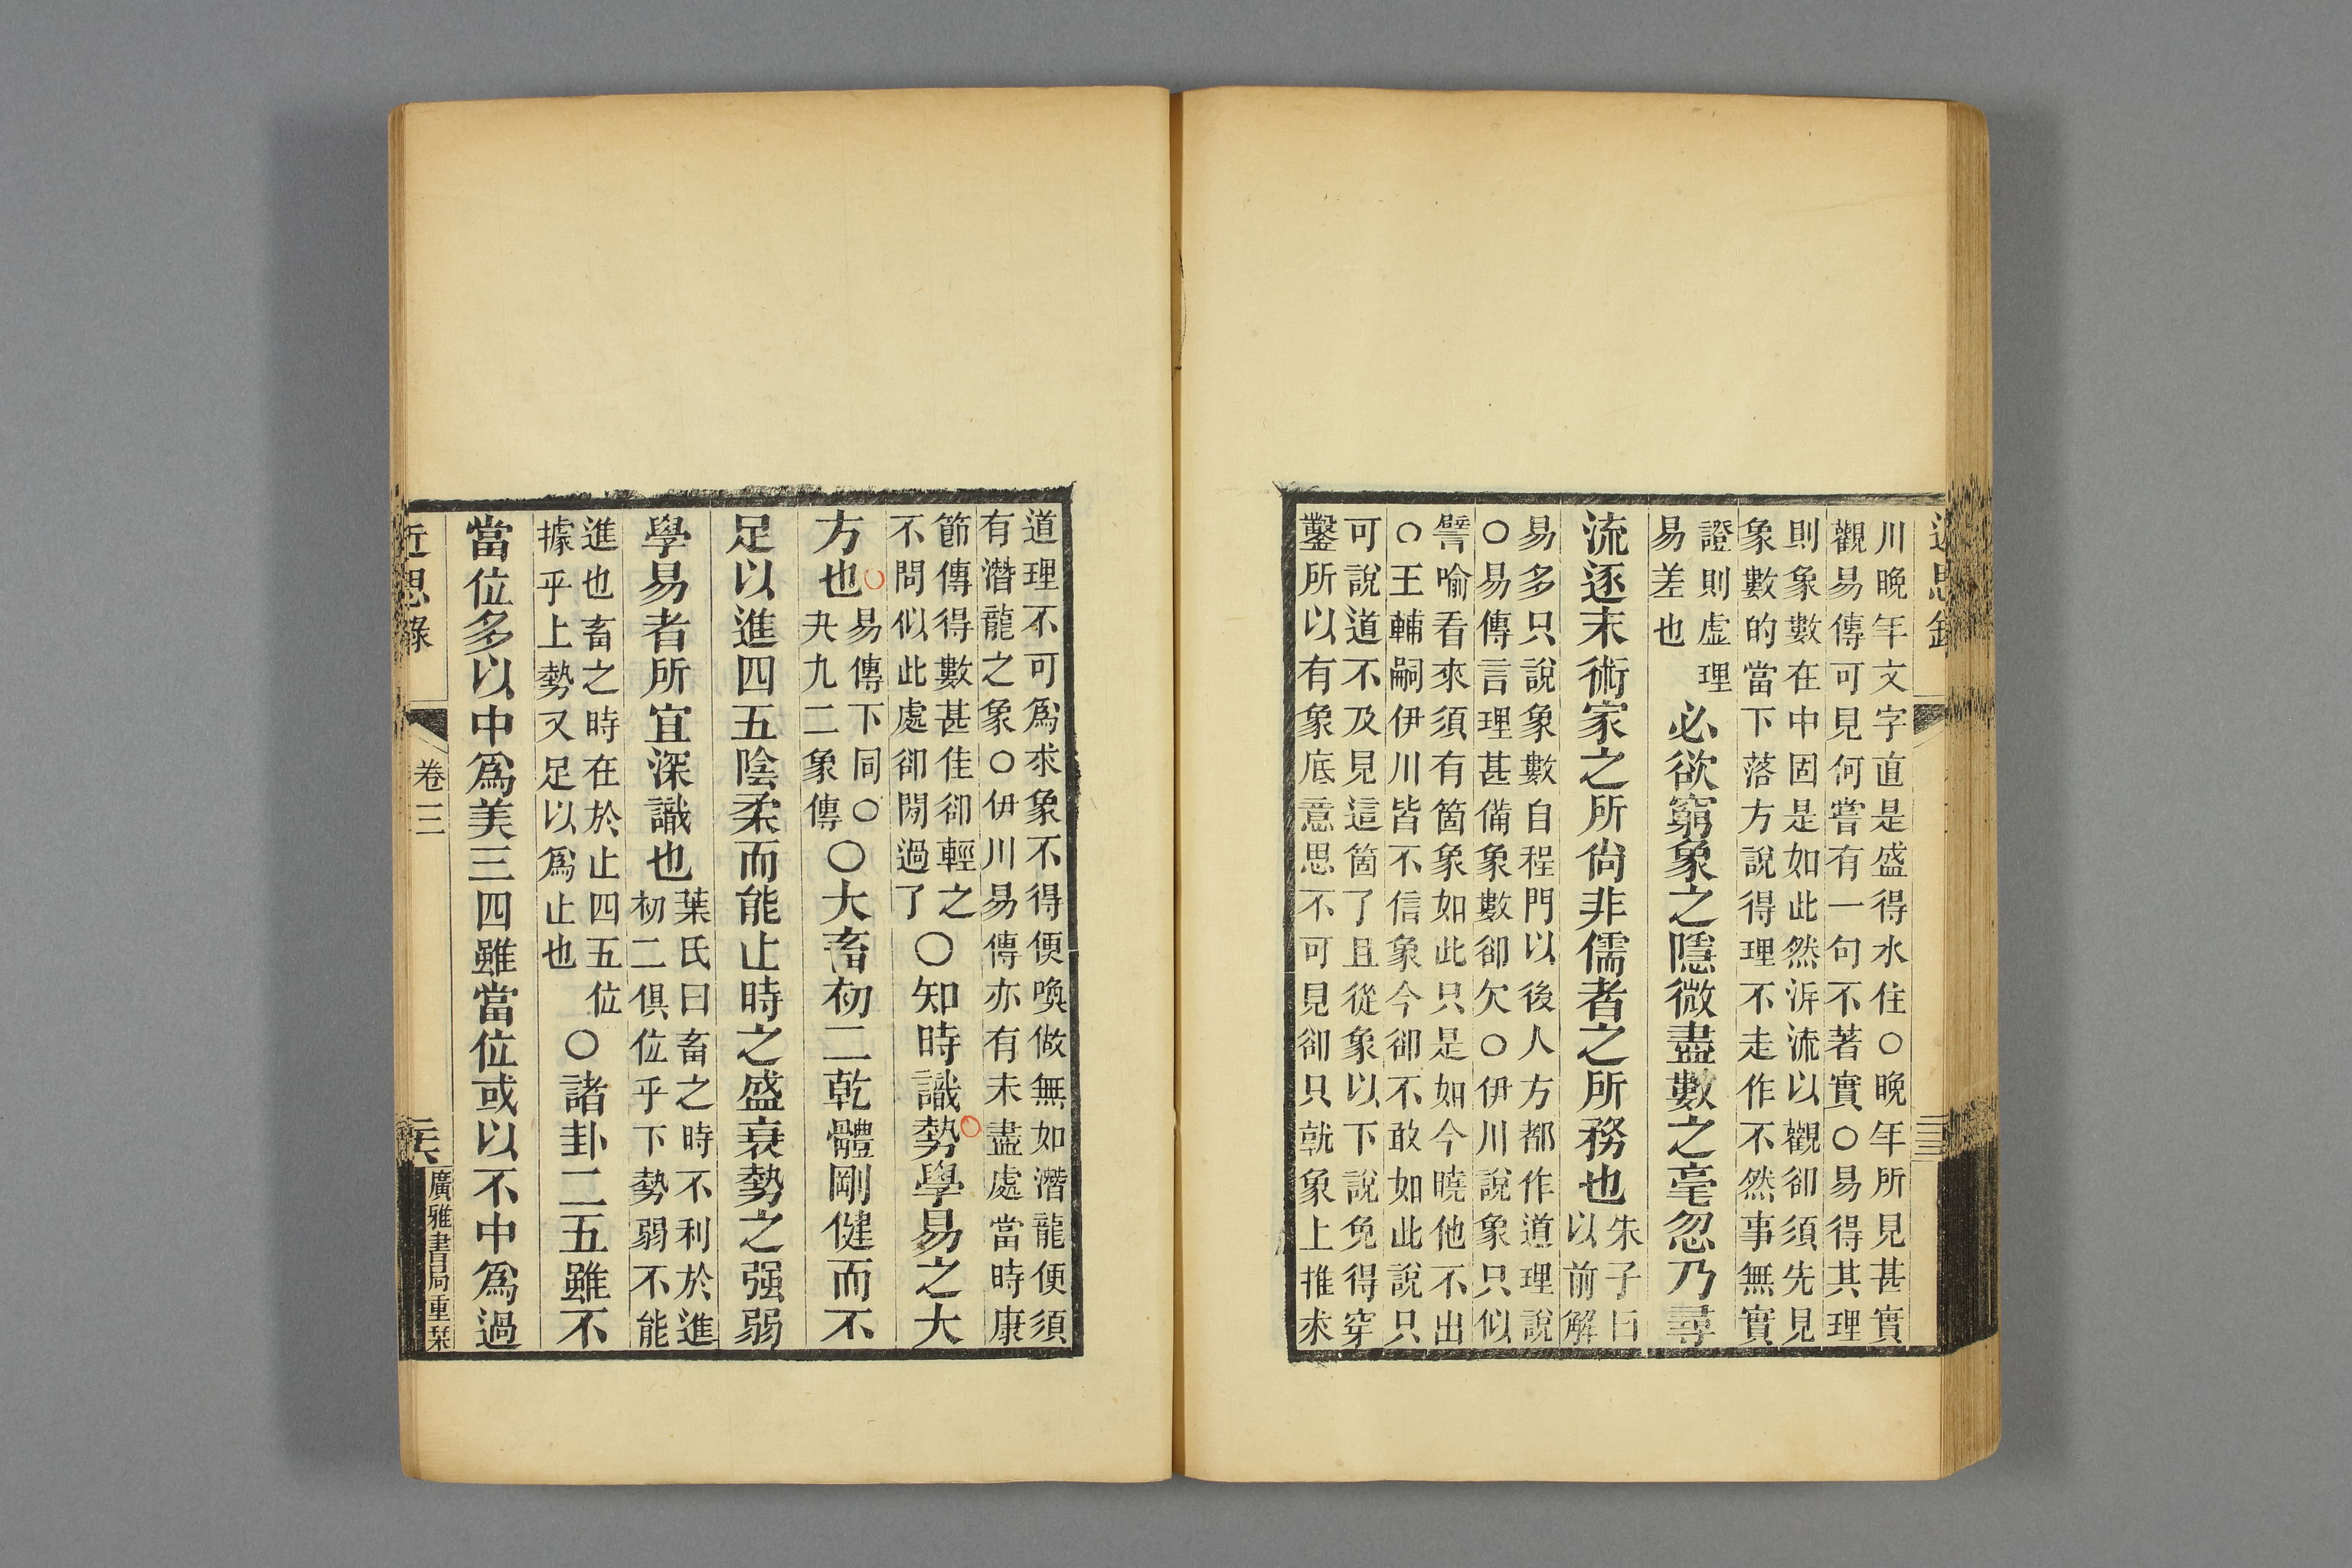 川晚年文字直是盛得水住○晚年所見甚實
觀易傳可見何嘗有一句不著實○易得其理
則象數在中固是如此然泝流以觀卻須先見
象數的當下落方說得理不走作不然事無實
證則虛理
易差也
必欲窮象之隱微盡數之毫忽乃尋
流逐末術家之所尙非儒者之所務也
朱子曰
以前解
易多只說象數自程門以後人方都作道理說
○易傳言理甚備象數卻欠○伊川說象只似
譬喻看來須有箇象如此只是如今曉他不出
○王輔嗣伊川皆不信象今卻不敢如此說只
可說道不及見這箇了且從象以下說免得穿
鑿所以有象底意思不可見卻只就象上推求
道理不可爲求象不得便喚做無如潛龍便須
有潛龍之象○伊川易傳亦有未盡處當時康
節傳得數甚佳卻輕之
不問似此處卻閒過了
○知時識勢學易之大
方也
易傳下同○
夬九二象傳
○大畜初二乾體剛健而不
足以進四五陰柔而能止時之盛衰勢之强弱
學易者所宜深識也
葉氏曰畜之時不利於進
初二俱位乎下勢弱不能
進也畜之時在於止四五位
據乎上勢又足以爲止也
○諸卦二五雖不
當位多以中爲美三四雖當位或以不中爲過
近思錄
卷三
廣雅書局重栞